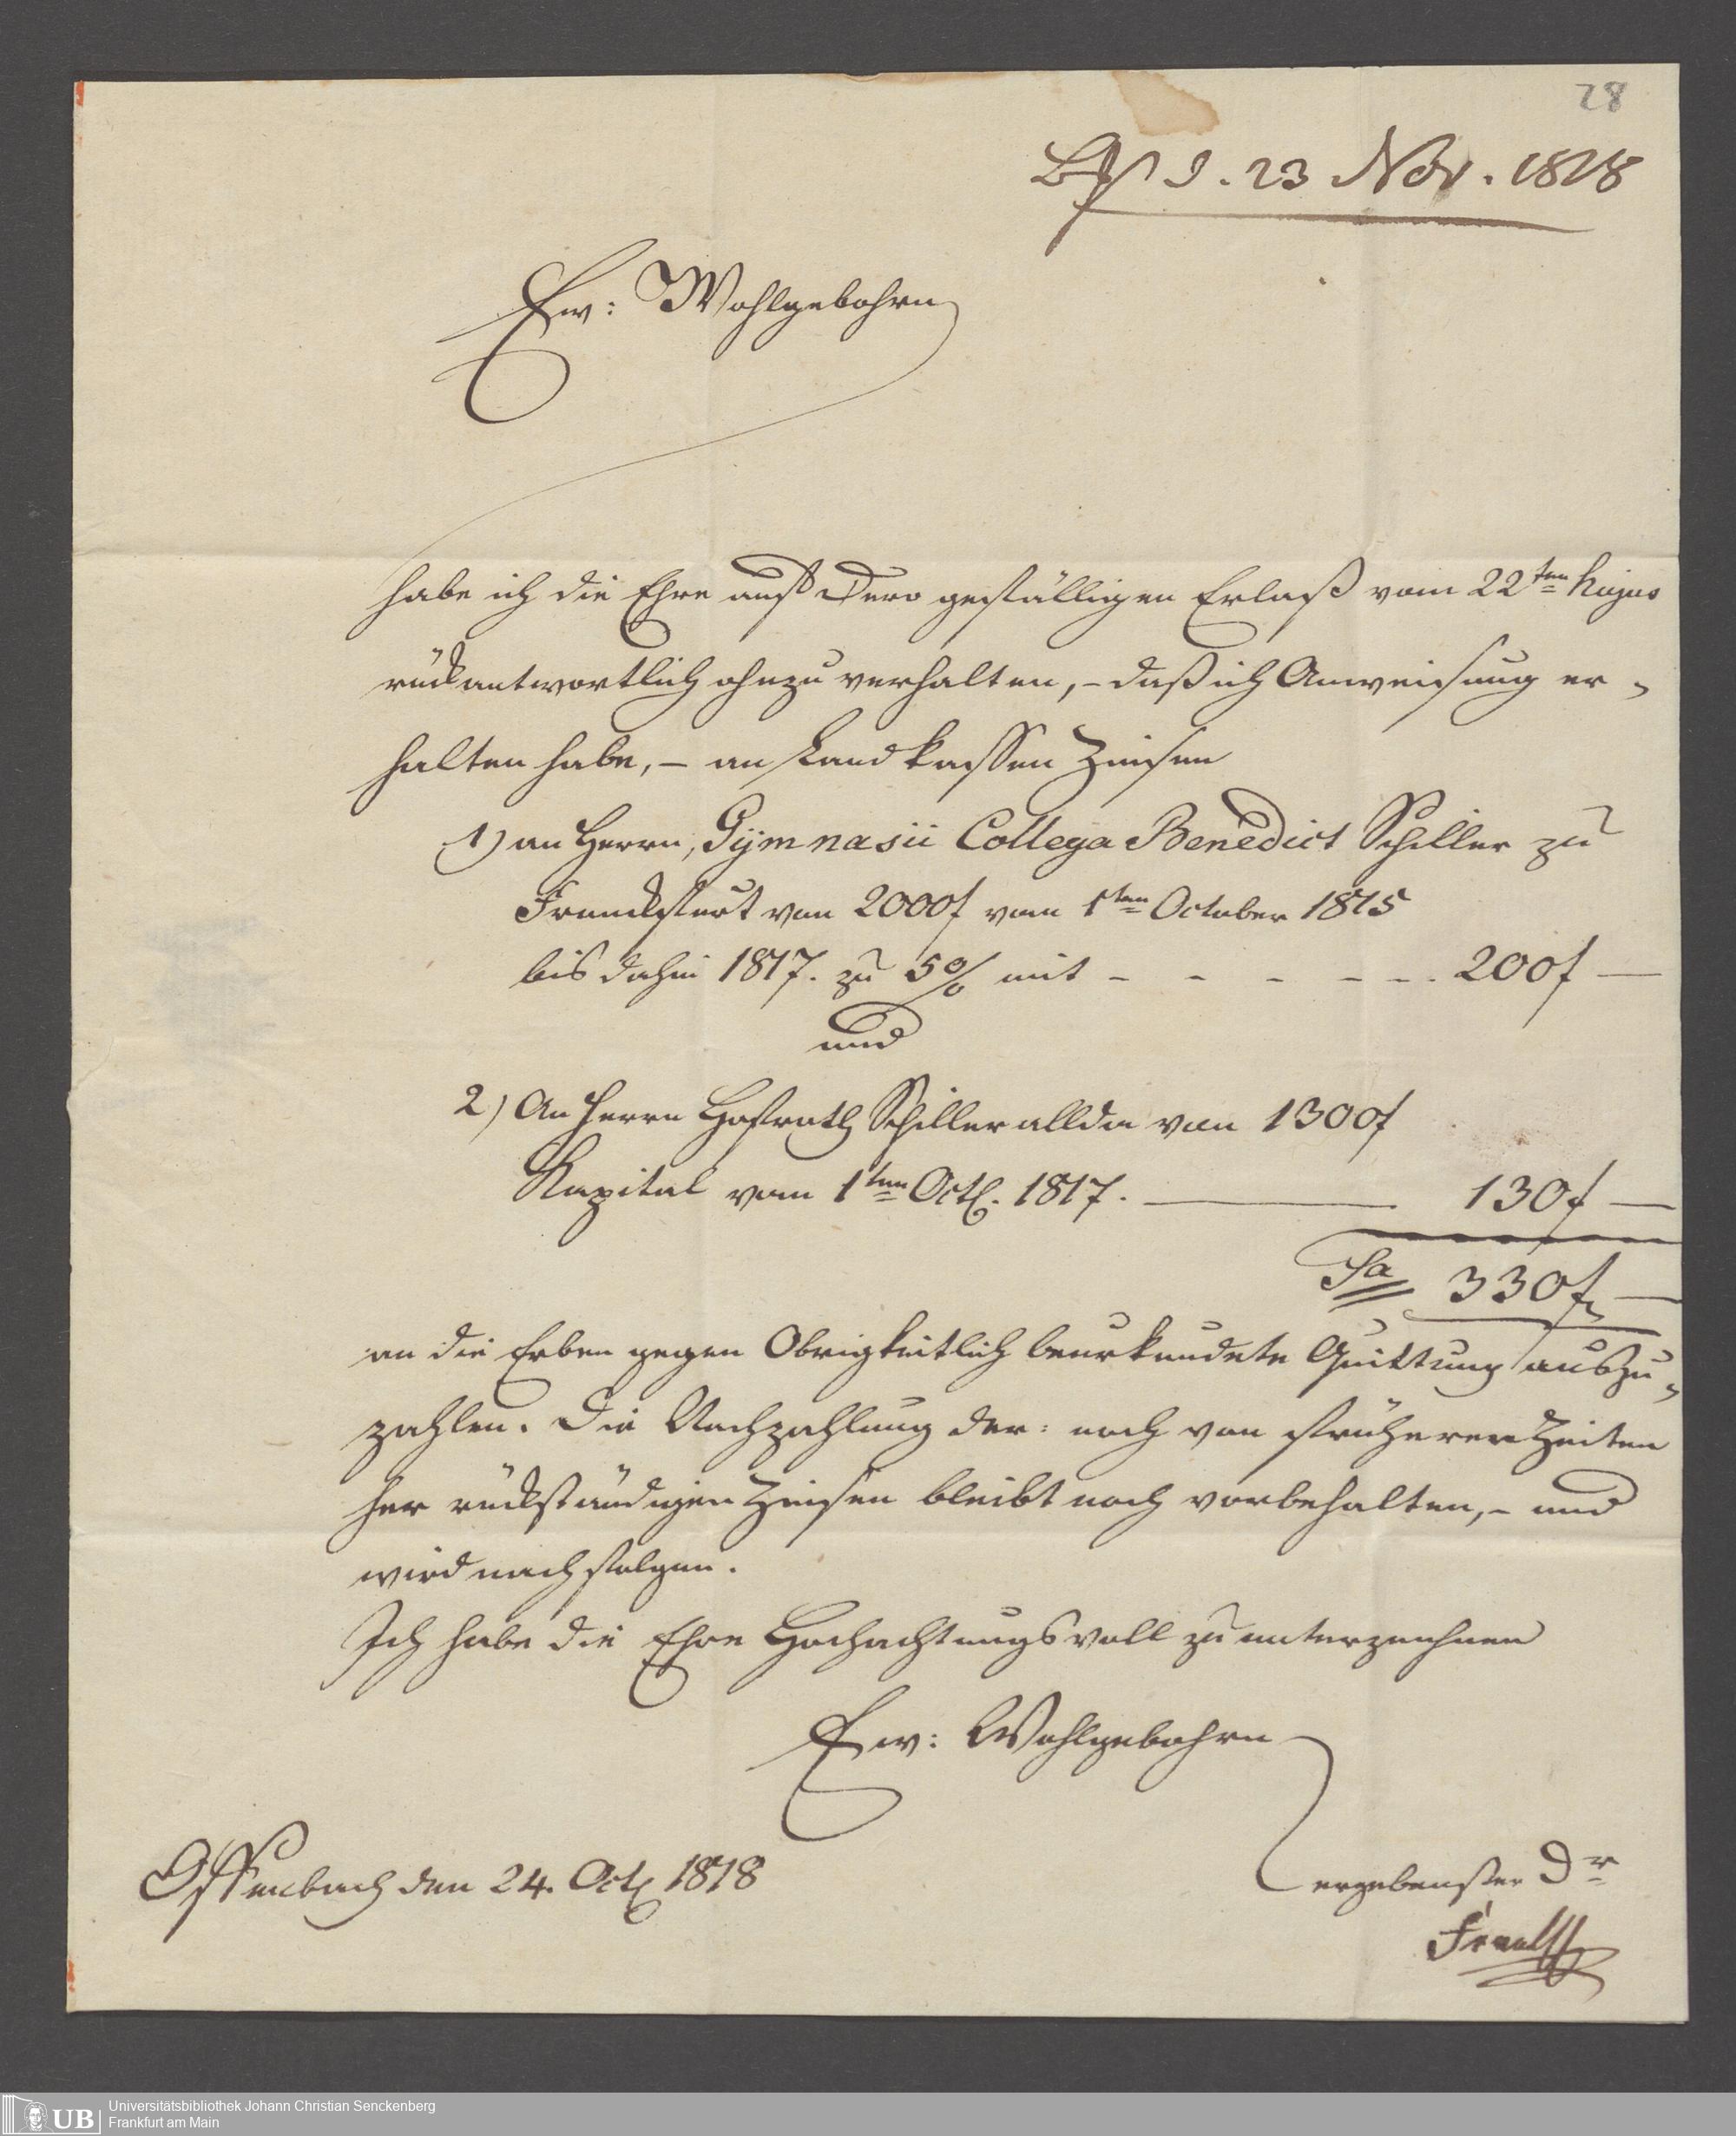 28
d. 23 Nov. 1818
Ew: Wohlgebohrn
habe ich die Ehre auf Dero gefälligen Erlaß vom 22ten hujus
rückantwortlich ohnzuverhalten, – daß ich Anweisung er-
halten habe, – an Landkassen Zinsen
1) an Herrn, Gymnasii Collega Benedict Schiller zu
Franckfurt von 2000f vom 1ten October 1815
bis dahin 1817. zu 5% mit - - - - - - 200f —
und
2) An Herrn Hofrath Schiller allda von 1300f
Kapital vom 1ten Octb. 1817. — 130f —
Sa 330f —
an die Erben gegen Obrigkeitlich beurkundete Quittung auszu-
zahlen. Die Nachzahlung der: noch von früheren Zeiten
her rückständigen Zinsen bleibt noch vorbehalten, – und
wird nachfolgen.
Ich habe die Ehre Hochachtungsvoll zu unterzeichnen
Ew: Wohlgebohrn
Offenbach den 24. Octb 1818
ergebenster Dr
UB
Universitätsbibliothek Johann Christian Senckenberg
Frankfurt am Main